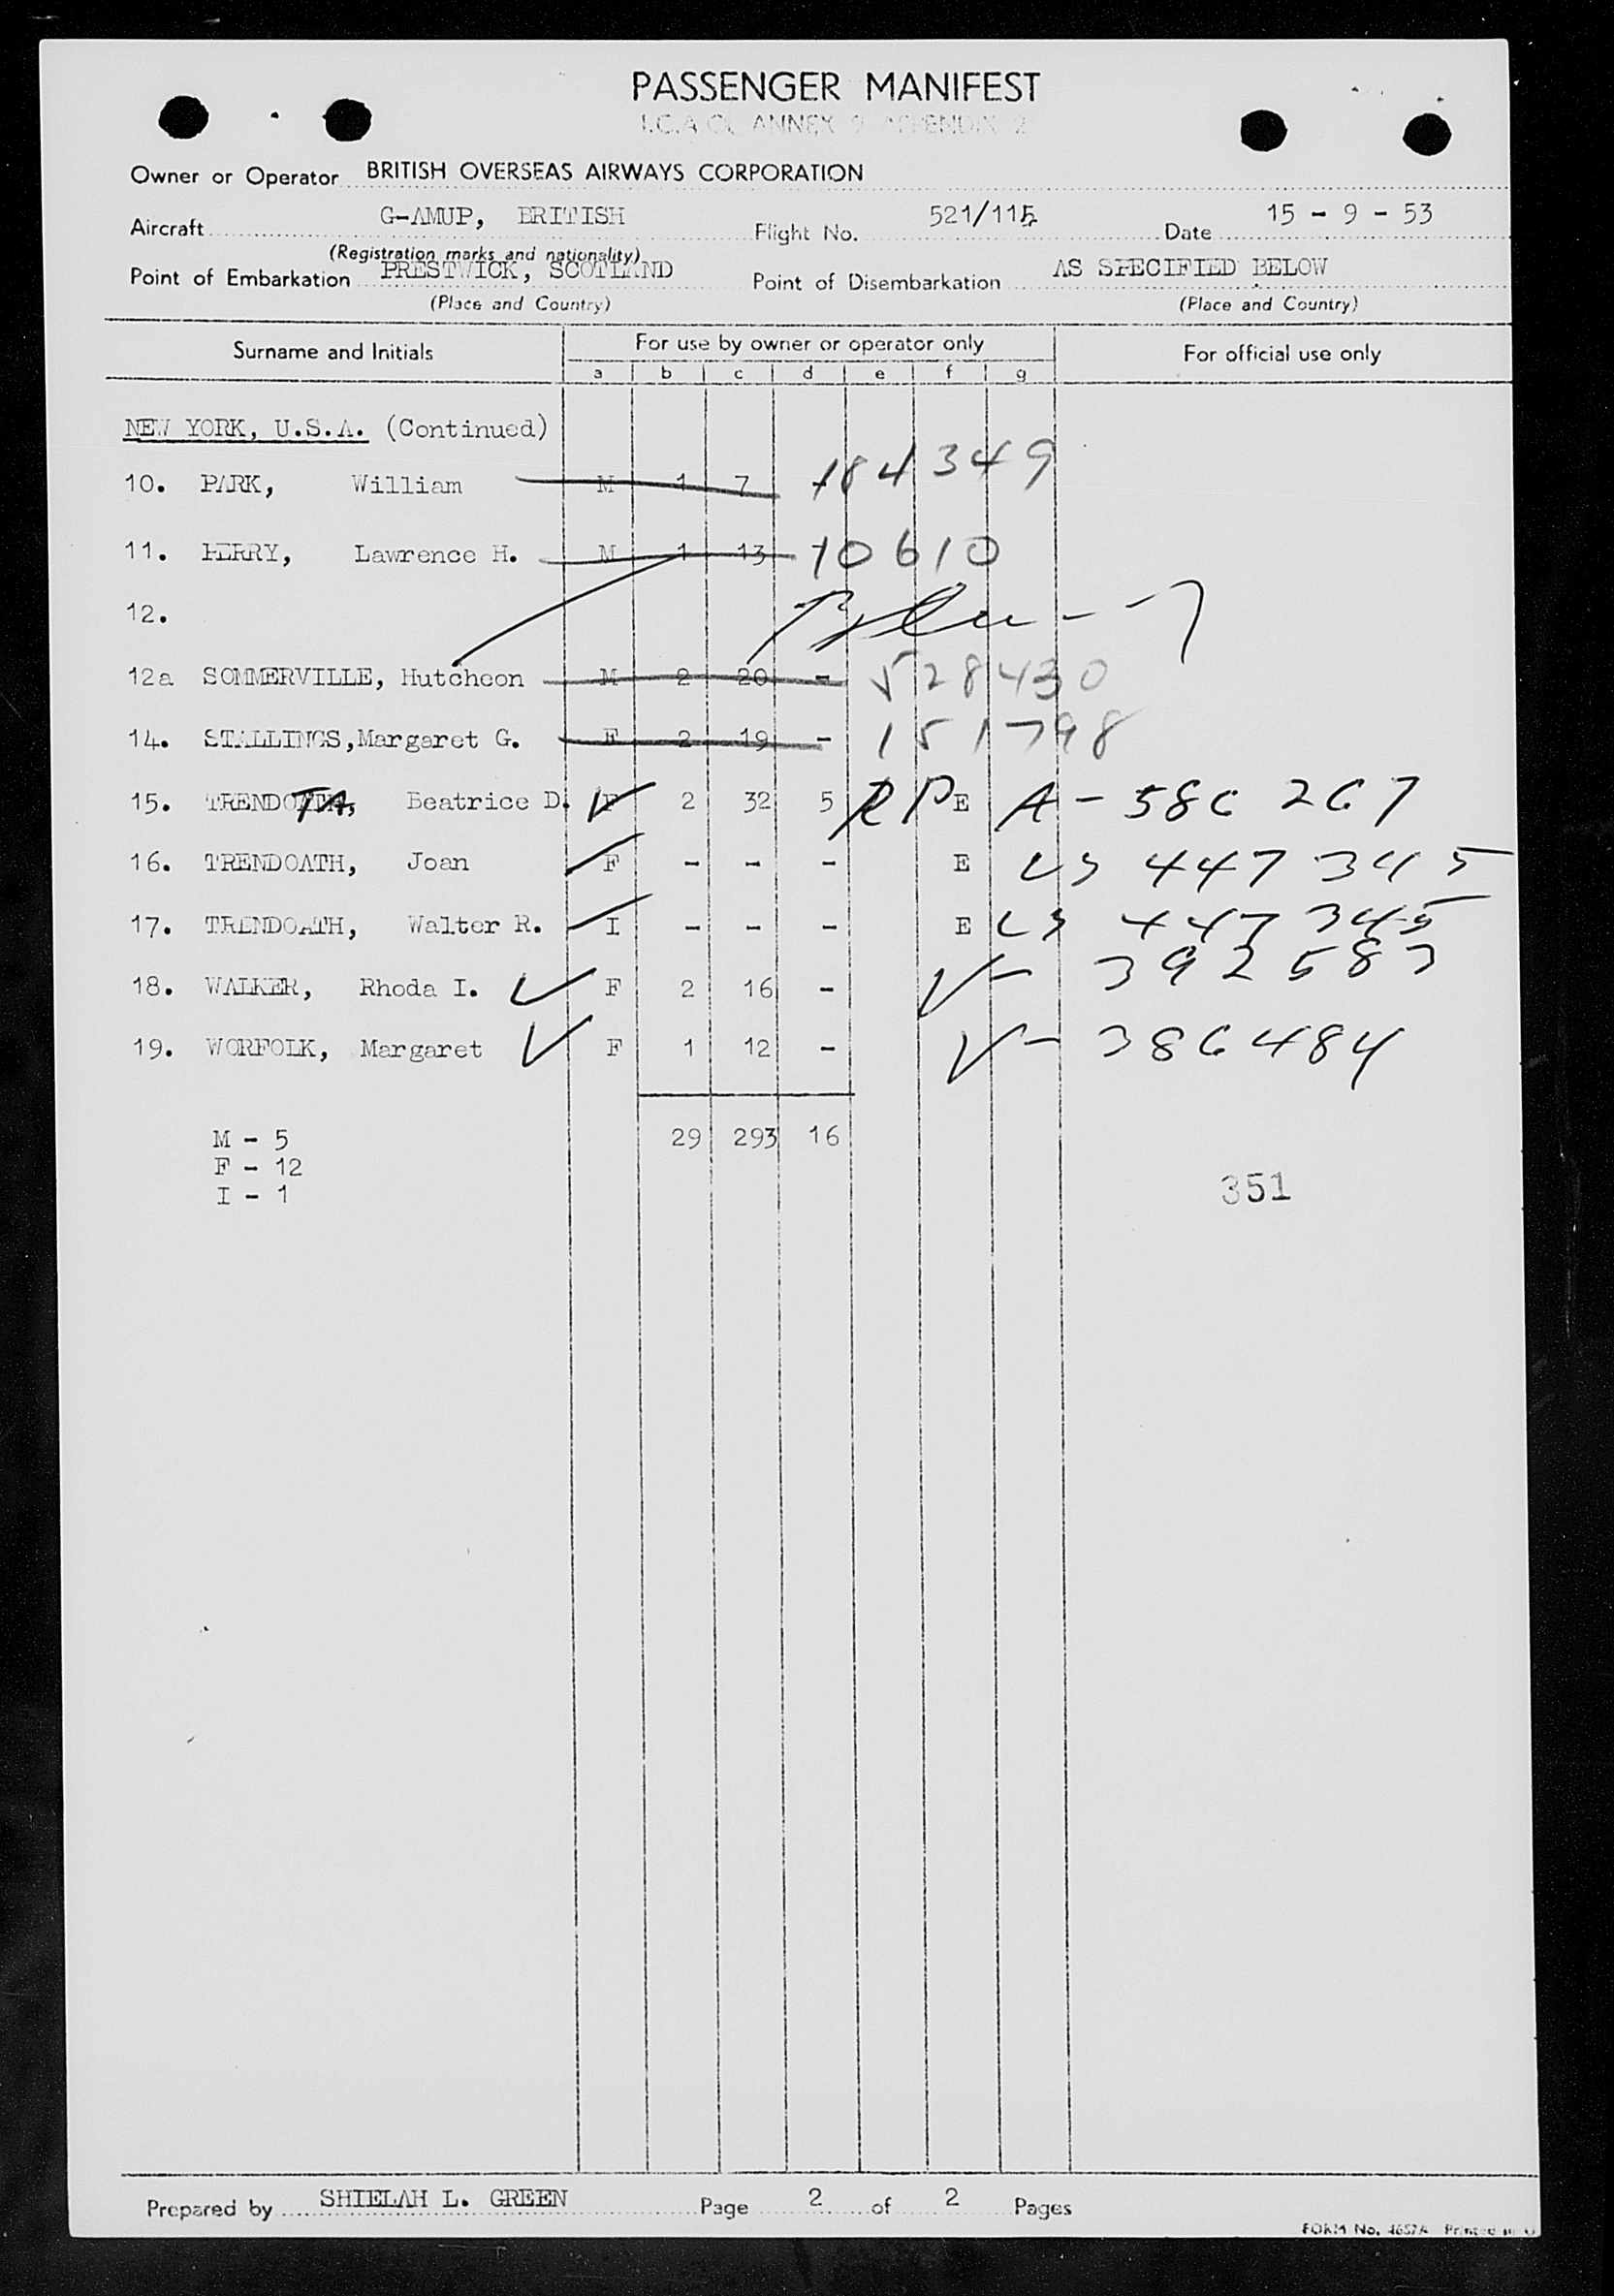 PASSENGER MANIFEST
I.C.A.O. ANNEX 9 APPENDIX 2
Owner or Operator BRITISH OVERSEAS AIRWAYS CORPORATION
Aircraft G-AMUP, BRITISH Flight No. 521/115 Date 15 - 9 - 53
(Registration marks and nationality)
Point of Embarkation PRESTWICK, SCOTLAND Point of Disembarkation AS SPECIFIED BELOW
(Place and Country) (Place and Country)
Surname and Initials For use by owner or operator only For official use only
a b c d e f g
NEW YORK, U.S.A. (Continued)
10. PARK, William M 1 7 - 184349
11. PERRY, Lawrence H. M 1 13 - 10610
12.
12a SOMMERVILLE, Hutcheon M 2 20 - 528430
14. STALLINGS, Margaret G. F 2 19 - 151798
15. TRENDOATH, Beatrice D. F 2 32 5 RP E A - 586 267
16. TRENDOATH, Joan F - - - E US 447 345
17. TRENDOATH, Walter R. I - - - E US 447 345
18. WALKER, Rhoda I. F 2 16 - V - 392583
19. WORFOLK, Margaret F 1 12 - V - 386484
M - 5 29 293 16
F - 12
I - 1
351
Prepared by SHIELAH L. GREEN Page 2 of 2 Pages
FORM No. 4657A Printed in